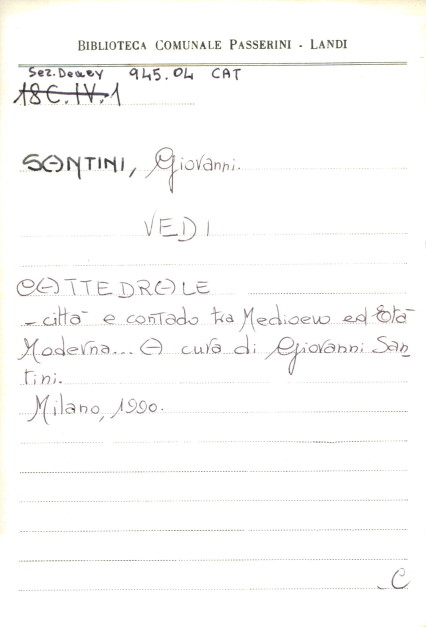 BIBLIOTECA COMUNALE PASSERINI - LANDI
Sez. Dewey 945.04 CAT
18C.IV.1
SANTINI, Giovanni.
VEDI
CATTEDRALE
- città e contado tra Medioevo ed Età
Moderna... A cura di Giovanni San-
tini.
Milano, 1990.
C